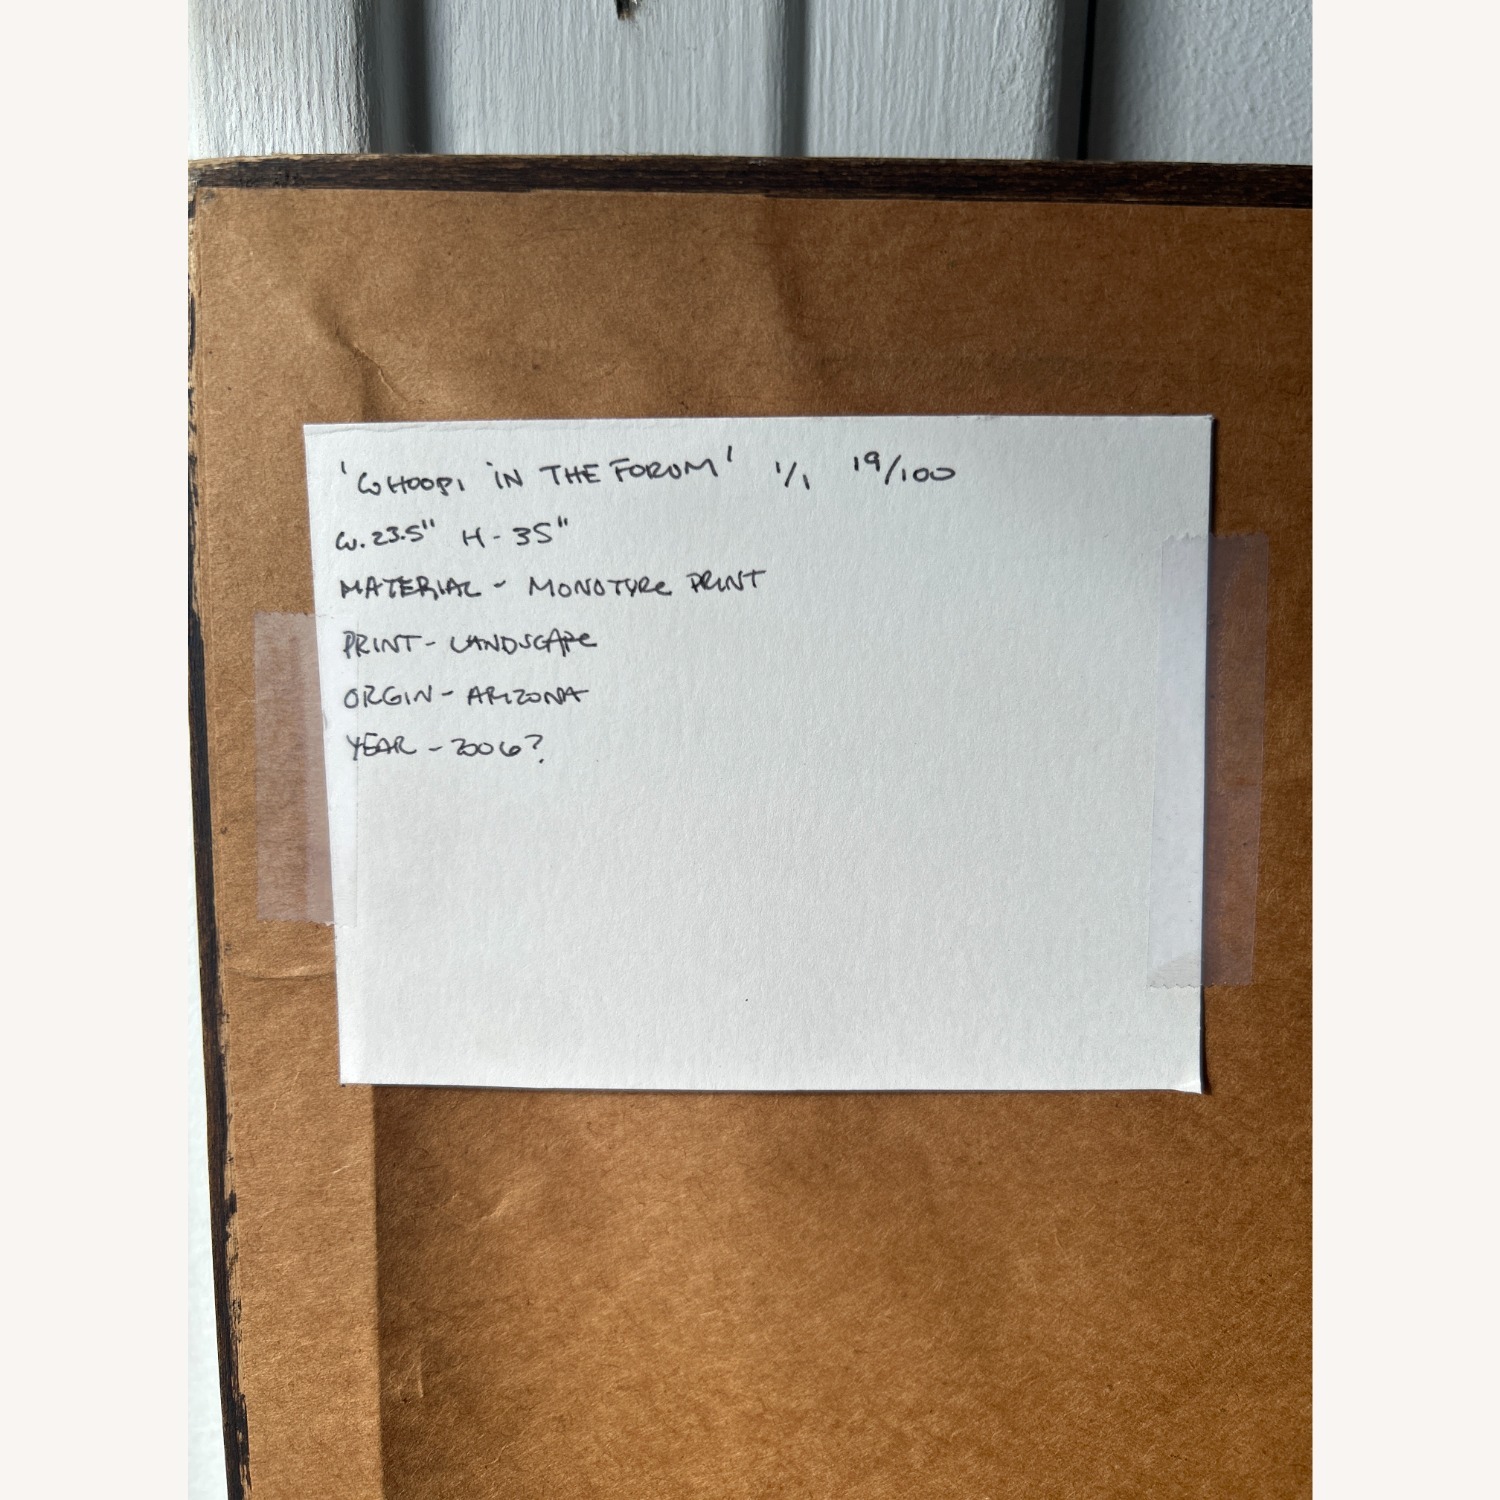 'WHOOPI IN THE FORUM' 1/1 19/100
W. 23.5" H - 35"
MATERIAL - MONOTYPE PRINT
PRINT - LANDSCAPE
ORGIN - ARIZONA
YEAR - 2006?